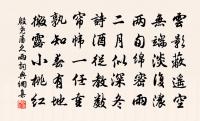 雲影蔽遙空
無端淡復濃
兩旬綿密雨
二月似深冬
詩酒從教數
帘幃一任重
孰知春有地
微露小桃紅
殷堯藩久雨詞典網書